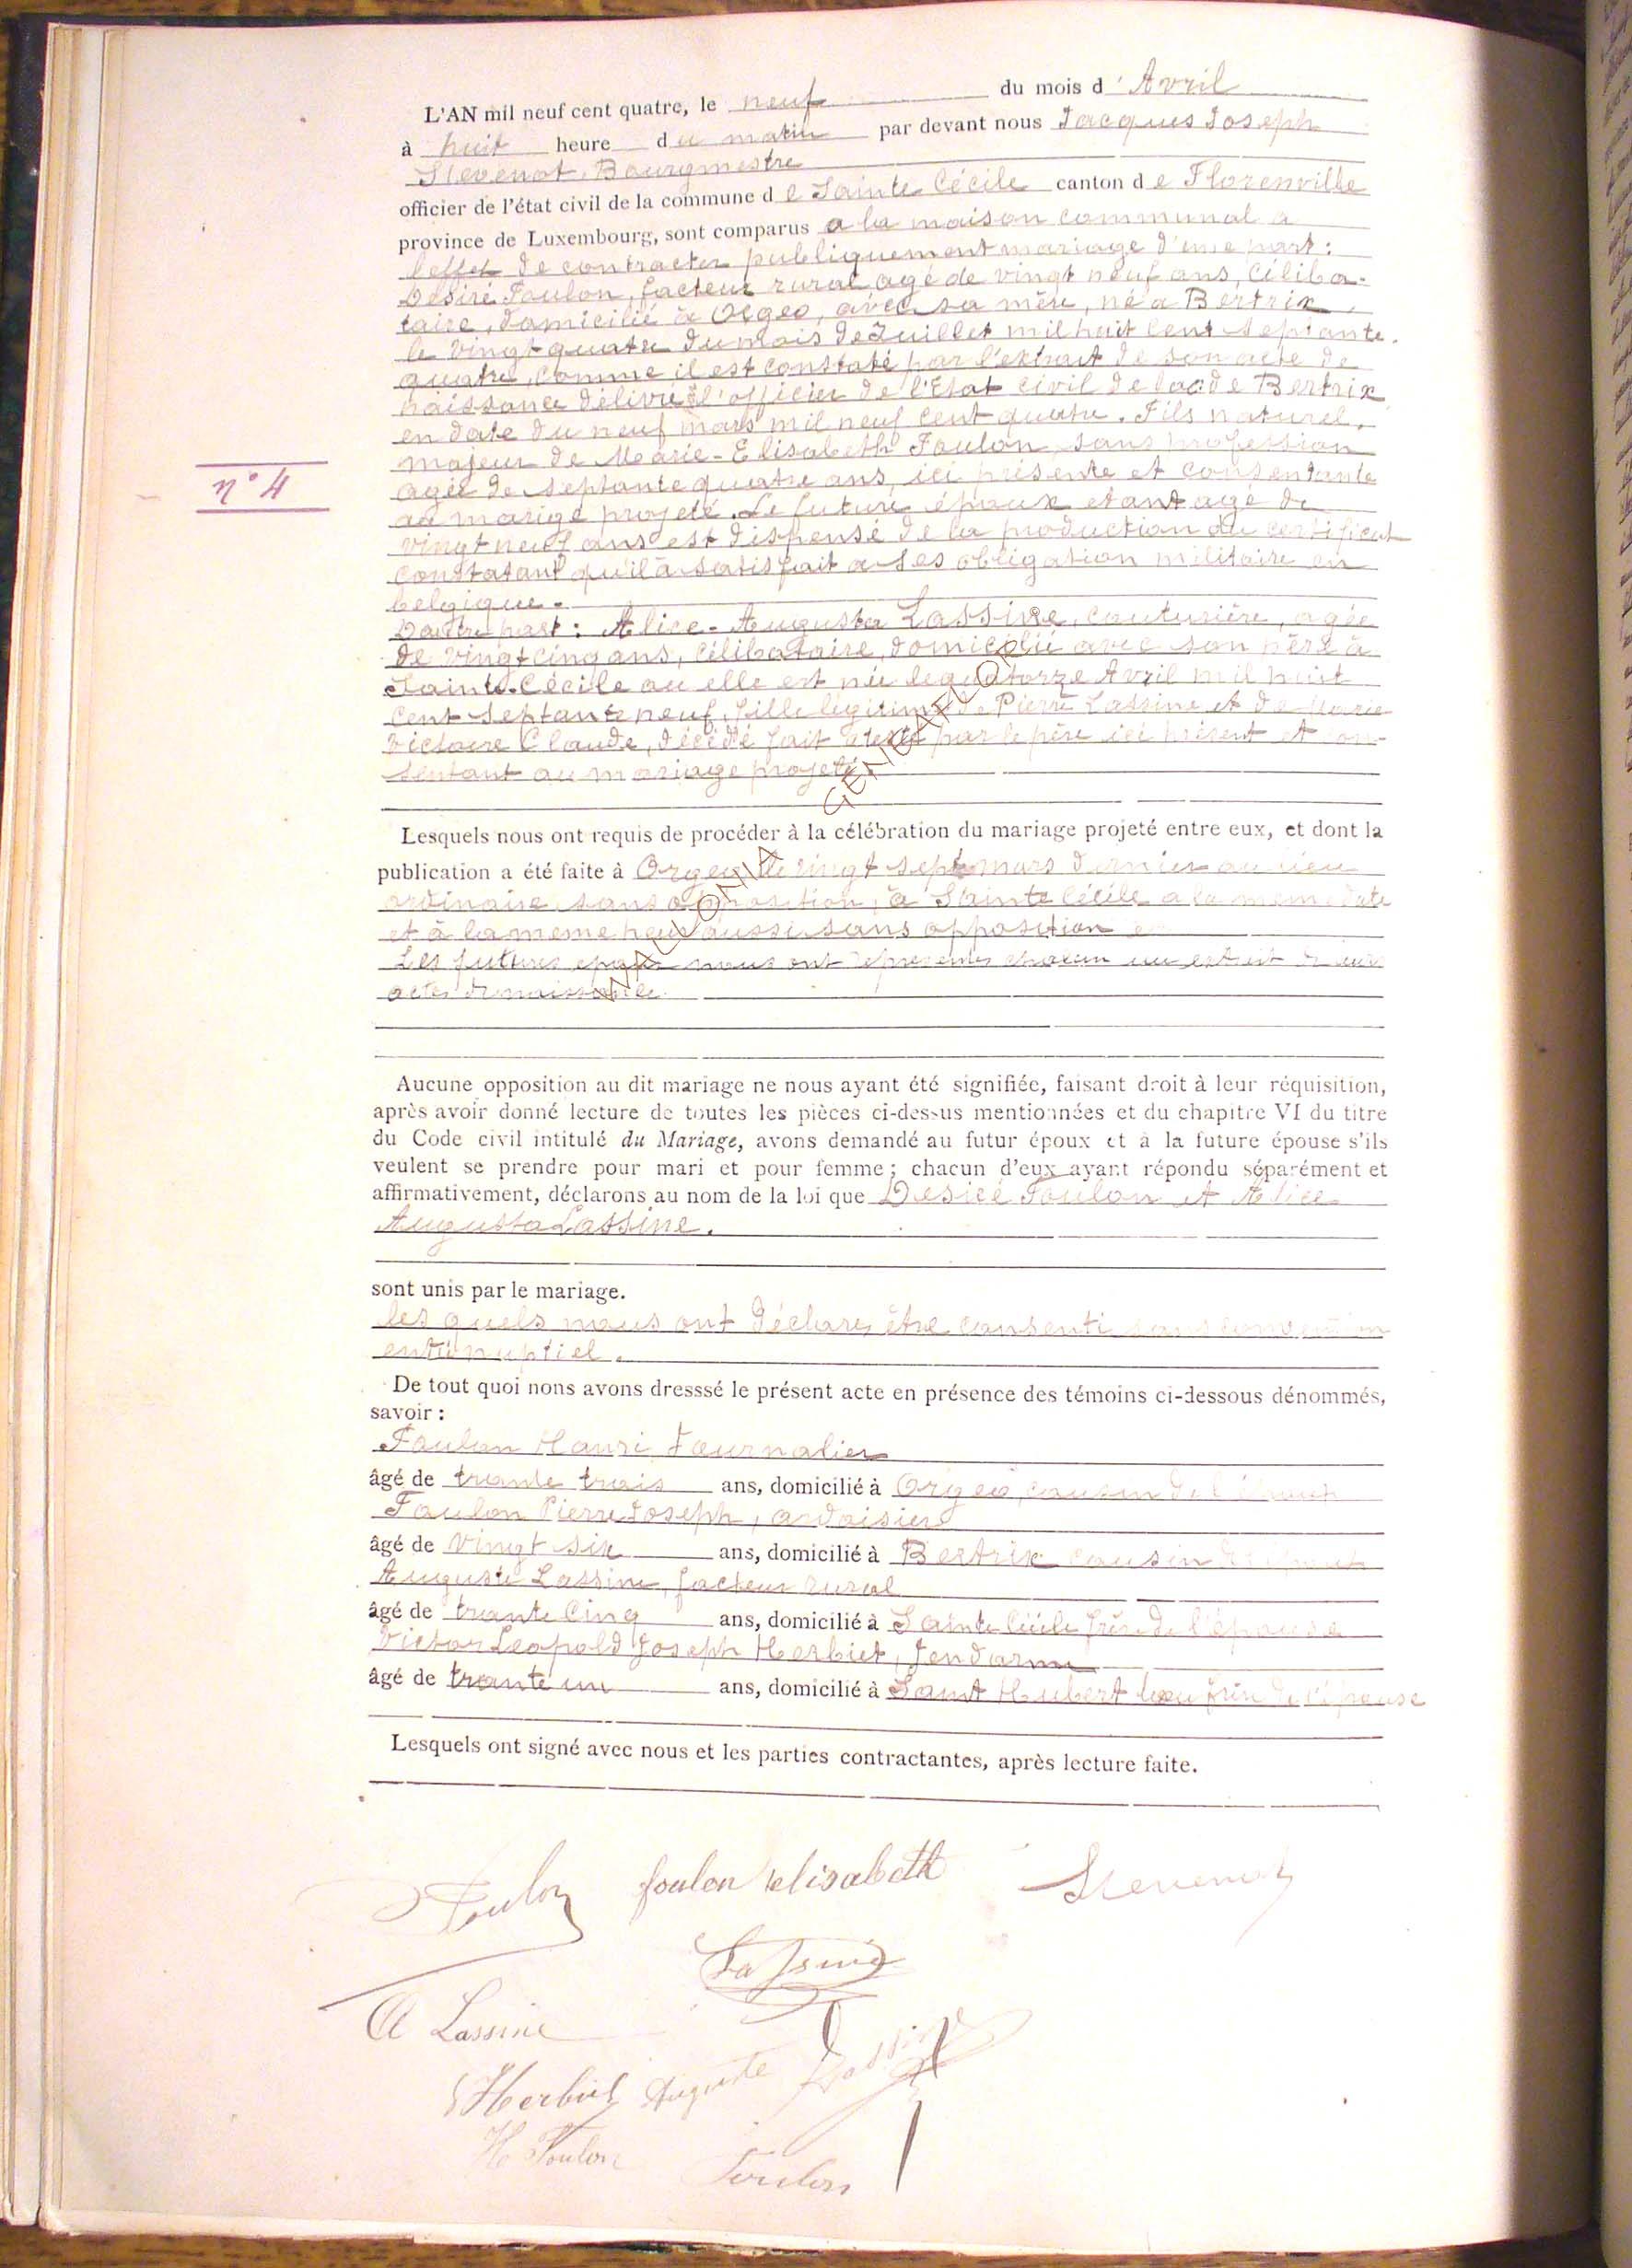 L'AN mil neuf cent quatre, le neuf du mois d'Avril
à huit heure du matin par devant nous Jacques Joseph
Stevenot, Bourgmestre
officier de l'état civil de la commune de Sainte Cécile canton de Florenville
province de Luxembourg, sont comparus a la maison communal a
l'effet de contracter publiquement mariage d'une part :
Désiré Foulon, facteur rural agé de vingt neuf ans, céliba-
taire, domicilié à Orgeo, avec sa mère, né a Bertrix,
le vingt quatre du mois de Juillet mil huit cent septante
quatre, comme il est constaté par l'extrait de son acte de
naissance délivré l'officier de l'Etat civil de la de Bertrix
en date du neuf mars mil neuf cent quatre. Fils naturel,
majeur de Marie-Elisabeth Foulon sans profession
agée de septante quatre ans, ici présente et consentante
au marige projeté. Le future époux etant agé de
vingt neuf ans est dispensé de la production du certificat
constatant qu'il a satisfait a ses obligation militaire en
belgique.
n° 4
D'autre part : Alice-Augusta Lassine, couturière, agée
de vingt cinq ans, célibataire, domicilié avec son père à
Sainte-Cécile ou elle est née le quatorze Avril mil huit
cent septante neuf, fille légitime de Pierre Lassine et de Marie
Victoire Claude, décédé fait attesté par le père ici présent et con-
sentant au mariage projeté.
Lesquels nous ont requis de procéder à la célébration du mariage projeté entre eux, et dont la
publication a été faite à Orgeo le vingt sept mars dernier au lieu
ordinaire sans opposition, à Sainte Cécile a la meme date
et à la meme heure aussi sans opposition
Les futures epoux nous ont chacun un extrait de leurs
actes de naissance.
GENEALOP
Aucune opposition au dit mariage ne nous ayant été signifiée, faisant droit à leur réquisition,
après avoir donné lecture de toutes les pièces ci-dessus mentionnées et du chapitre VI du titre
du Code civil intitulé du Mariage, avons demandé au futur époux et à la future épouse s'ils
veulent se prendre pour mari et pour femme ; chacun d'eux ayant répondu séparément et
affirmativement, déclarons au nom de la loi que Désiré Foulon et Alice
Augusta Lassine.
sont unis par le mariage.
les quels nous ont déclarés être consenti sans
De tout quoi nons avons dresssé le présent acte en présence des témoins ci-dessous dénommés,
savoir :
Foulon Hanri Journalier
âgé de trante trois ans, domicilié à Orgeo, cousin de l'époux
Foulon Pierre Joseph, ardoisier
âgé de Vingt six ans, domicilié à Bertrix cousin de l'époux
Auguste Lassine, facteur rural
âgé de trante cinq ans, domicilié à Sainte Cécile frère de l'épouse
Victor Leopold Joseph Herbiet, Jendarme
âgé de trante un ans, domicilié à Saint Hubert beau frère de l'épouse
Lesquels ont signé avec nous et les parties contractantes, après lecture faite.
Foulon foulon elisabeth Stevenot
Lassine
A Lassine
Herbiet Auguste Lassine
H Foulon Foulon